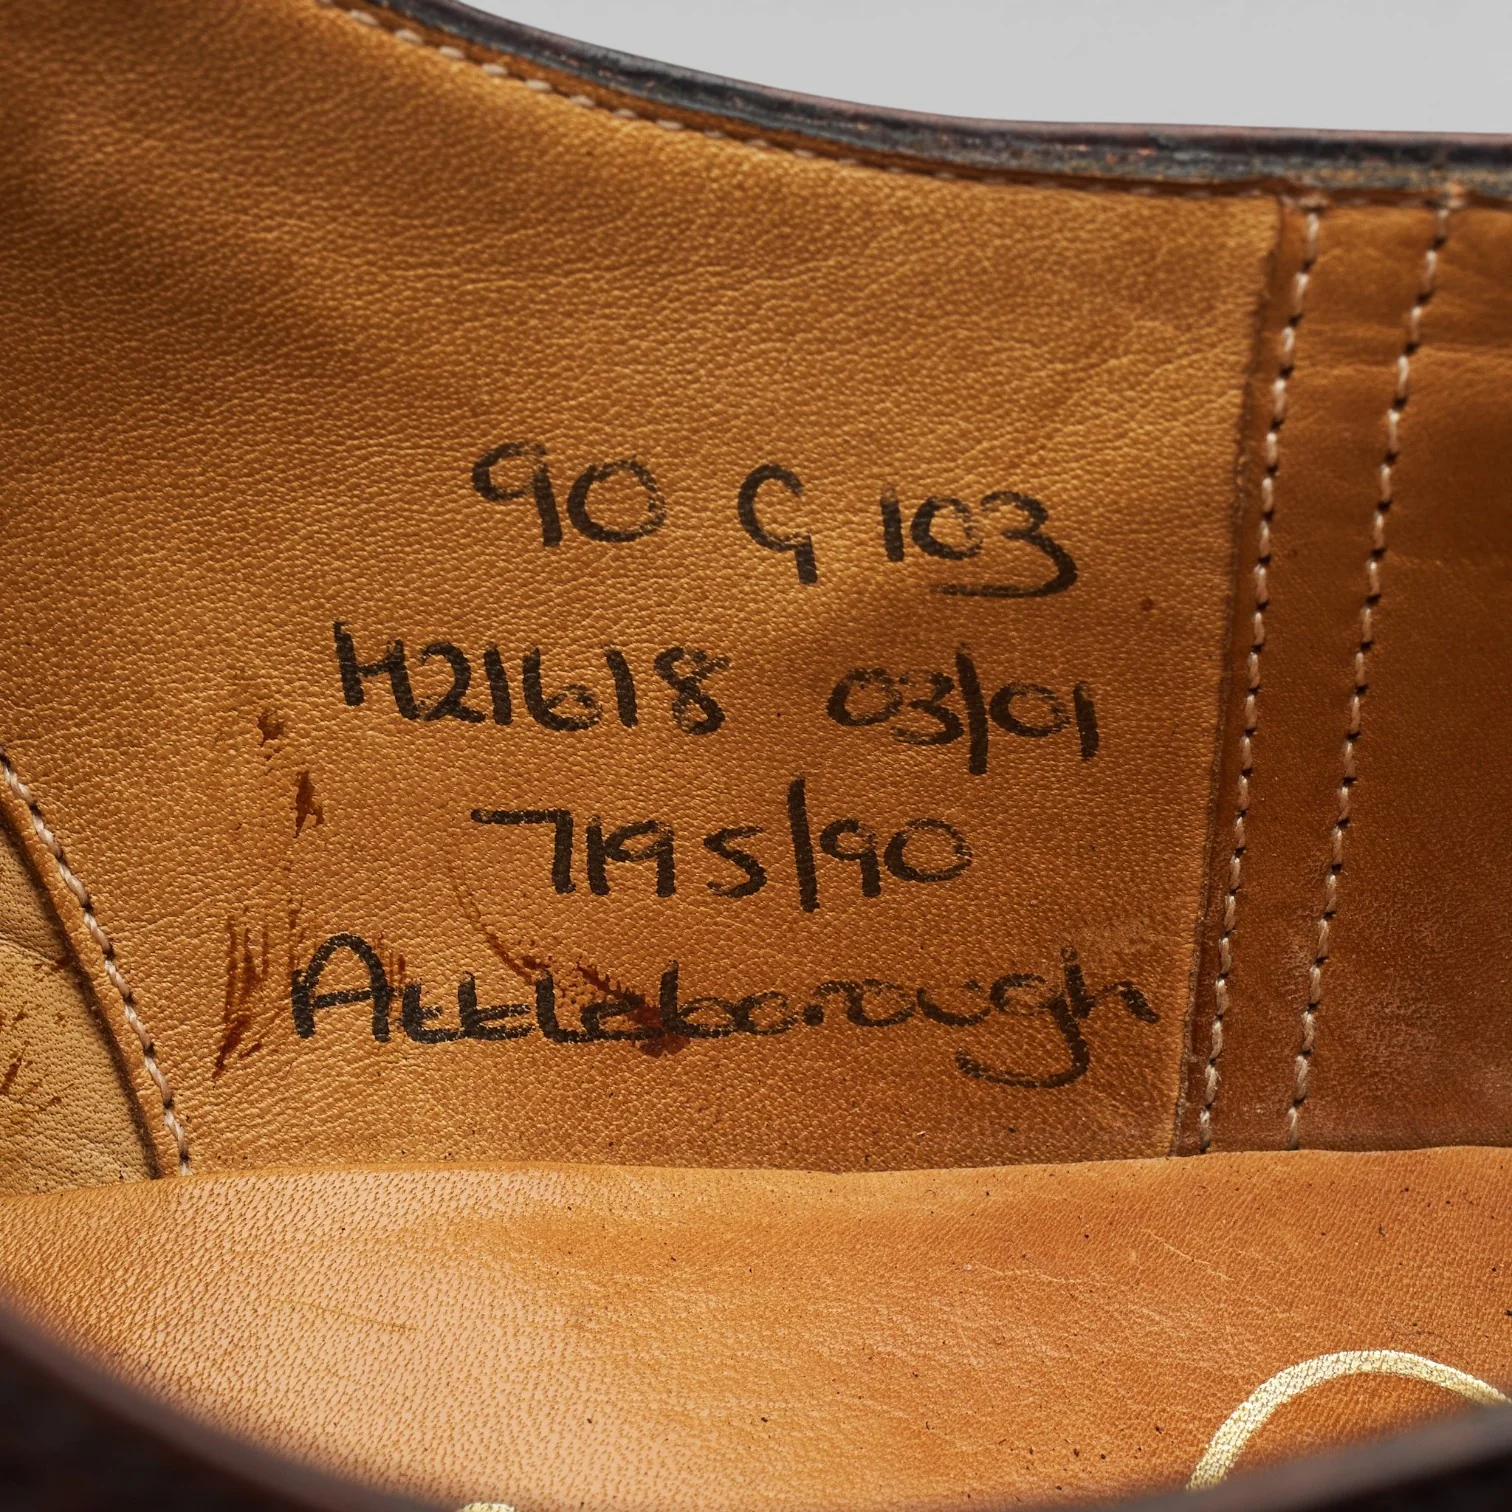 90 G 103
H21618 03/01
7195/90
Attleborough